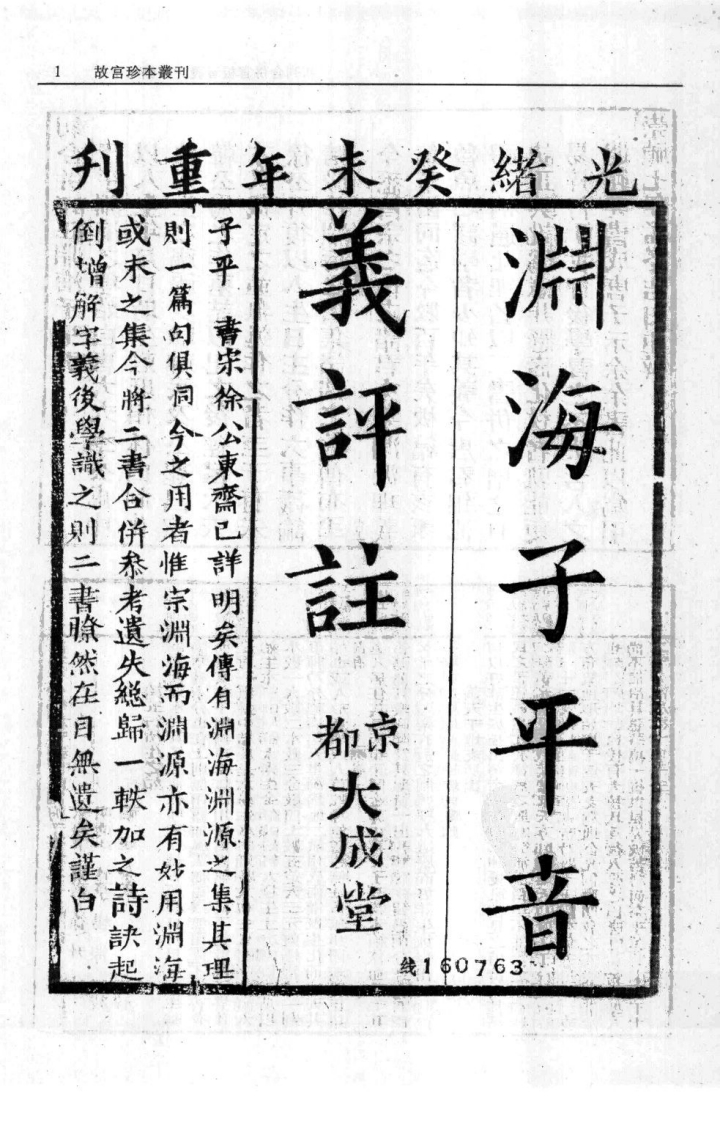 1 故宫珍本叢刊
光緒癸未年重刊
淵海子平音
義評註
京都
大成堂
子平書宋徐公東齋已詳明矣傳有淵海淵源之集其理
則一篇句俱同今之用者惟宗淵海而淵源亦有妙用淵海
或未之集今將二書合併叅考遺失總歸一軼加之詩訣起
倒增解字義後學識之則二書瞭然在目無遺矣謹白
线160763